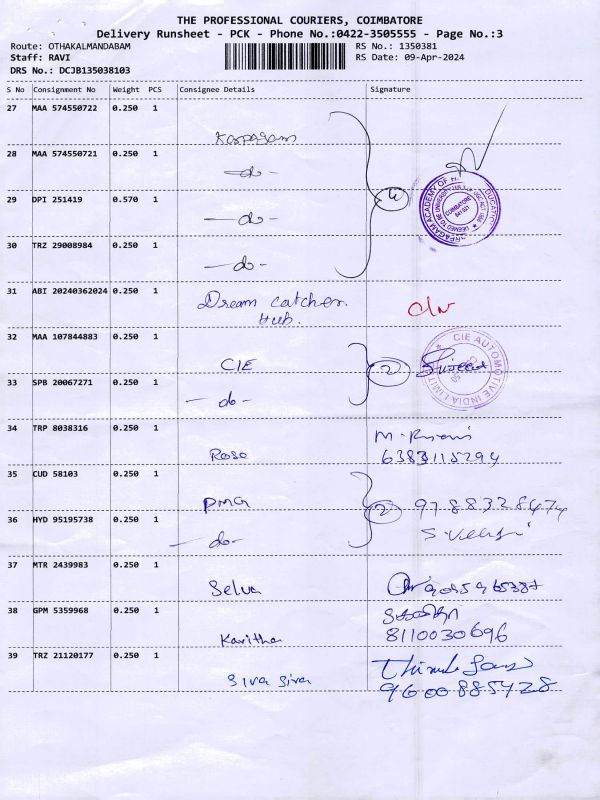 THE PROFESSIONAL COURIERS, COIMBATORE
Delivery Runsheet - PCK - Phone No.:0422-3505555 - Page No.:3
Route: OTHAKALMANDABAM RS No.: 1350381
Staff: RAVI RS Date: 09-Apr-2024
DRS No.: DCJB135038103
S No Consignment No Weight PCS Consignee Details Signature
27 MAA 574550722 0.250 1
Karpagam
28 MAA 574550721 0.250 1
-do-
29 DPI 251419 0.570 1
4
-do-
30 TRZ 29008984 0.250 1
-do-
31 ABI 20240362024 0.250 1
Dream catcher
Hub.
32 MAA 107844883 0.250 1
CIE 2
CIE AUTOMOTIVE INDIA LIMITED
33 SPB 20067271 0.250 1
-do-
34 TRP 8038316 0.250 1
Rose 6383115294
35 CUD 58103 0.250 1
PMG 2 9788328474
36 HYD 95195738 0.250 1
-do-
37 MTR 2439983 0.250 1
Selva
38 GPM 5359968 0.250 1
Kavitha 8110030696
39 TRZ 21120177 0.250 1
Siva Siva 9600885428